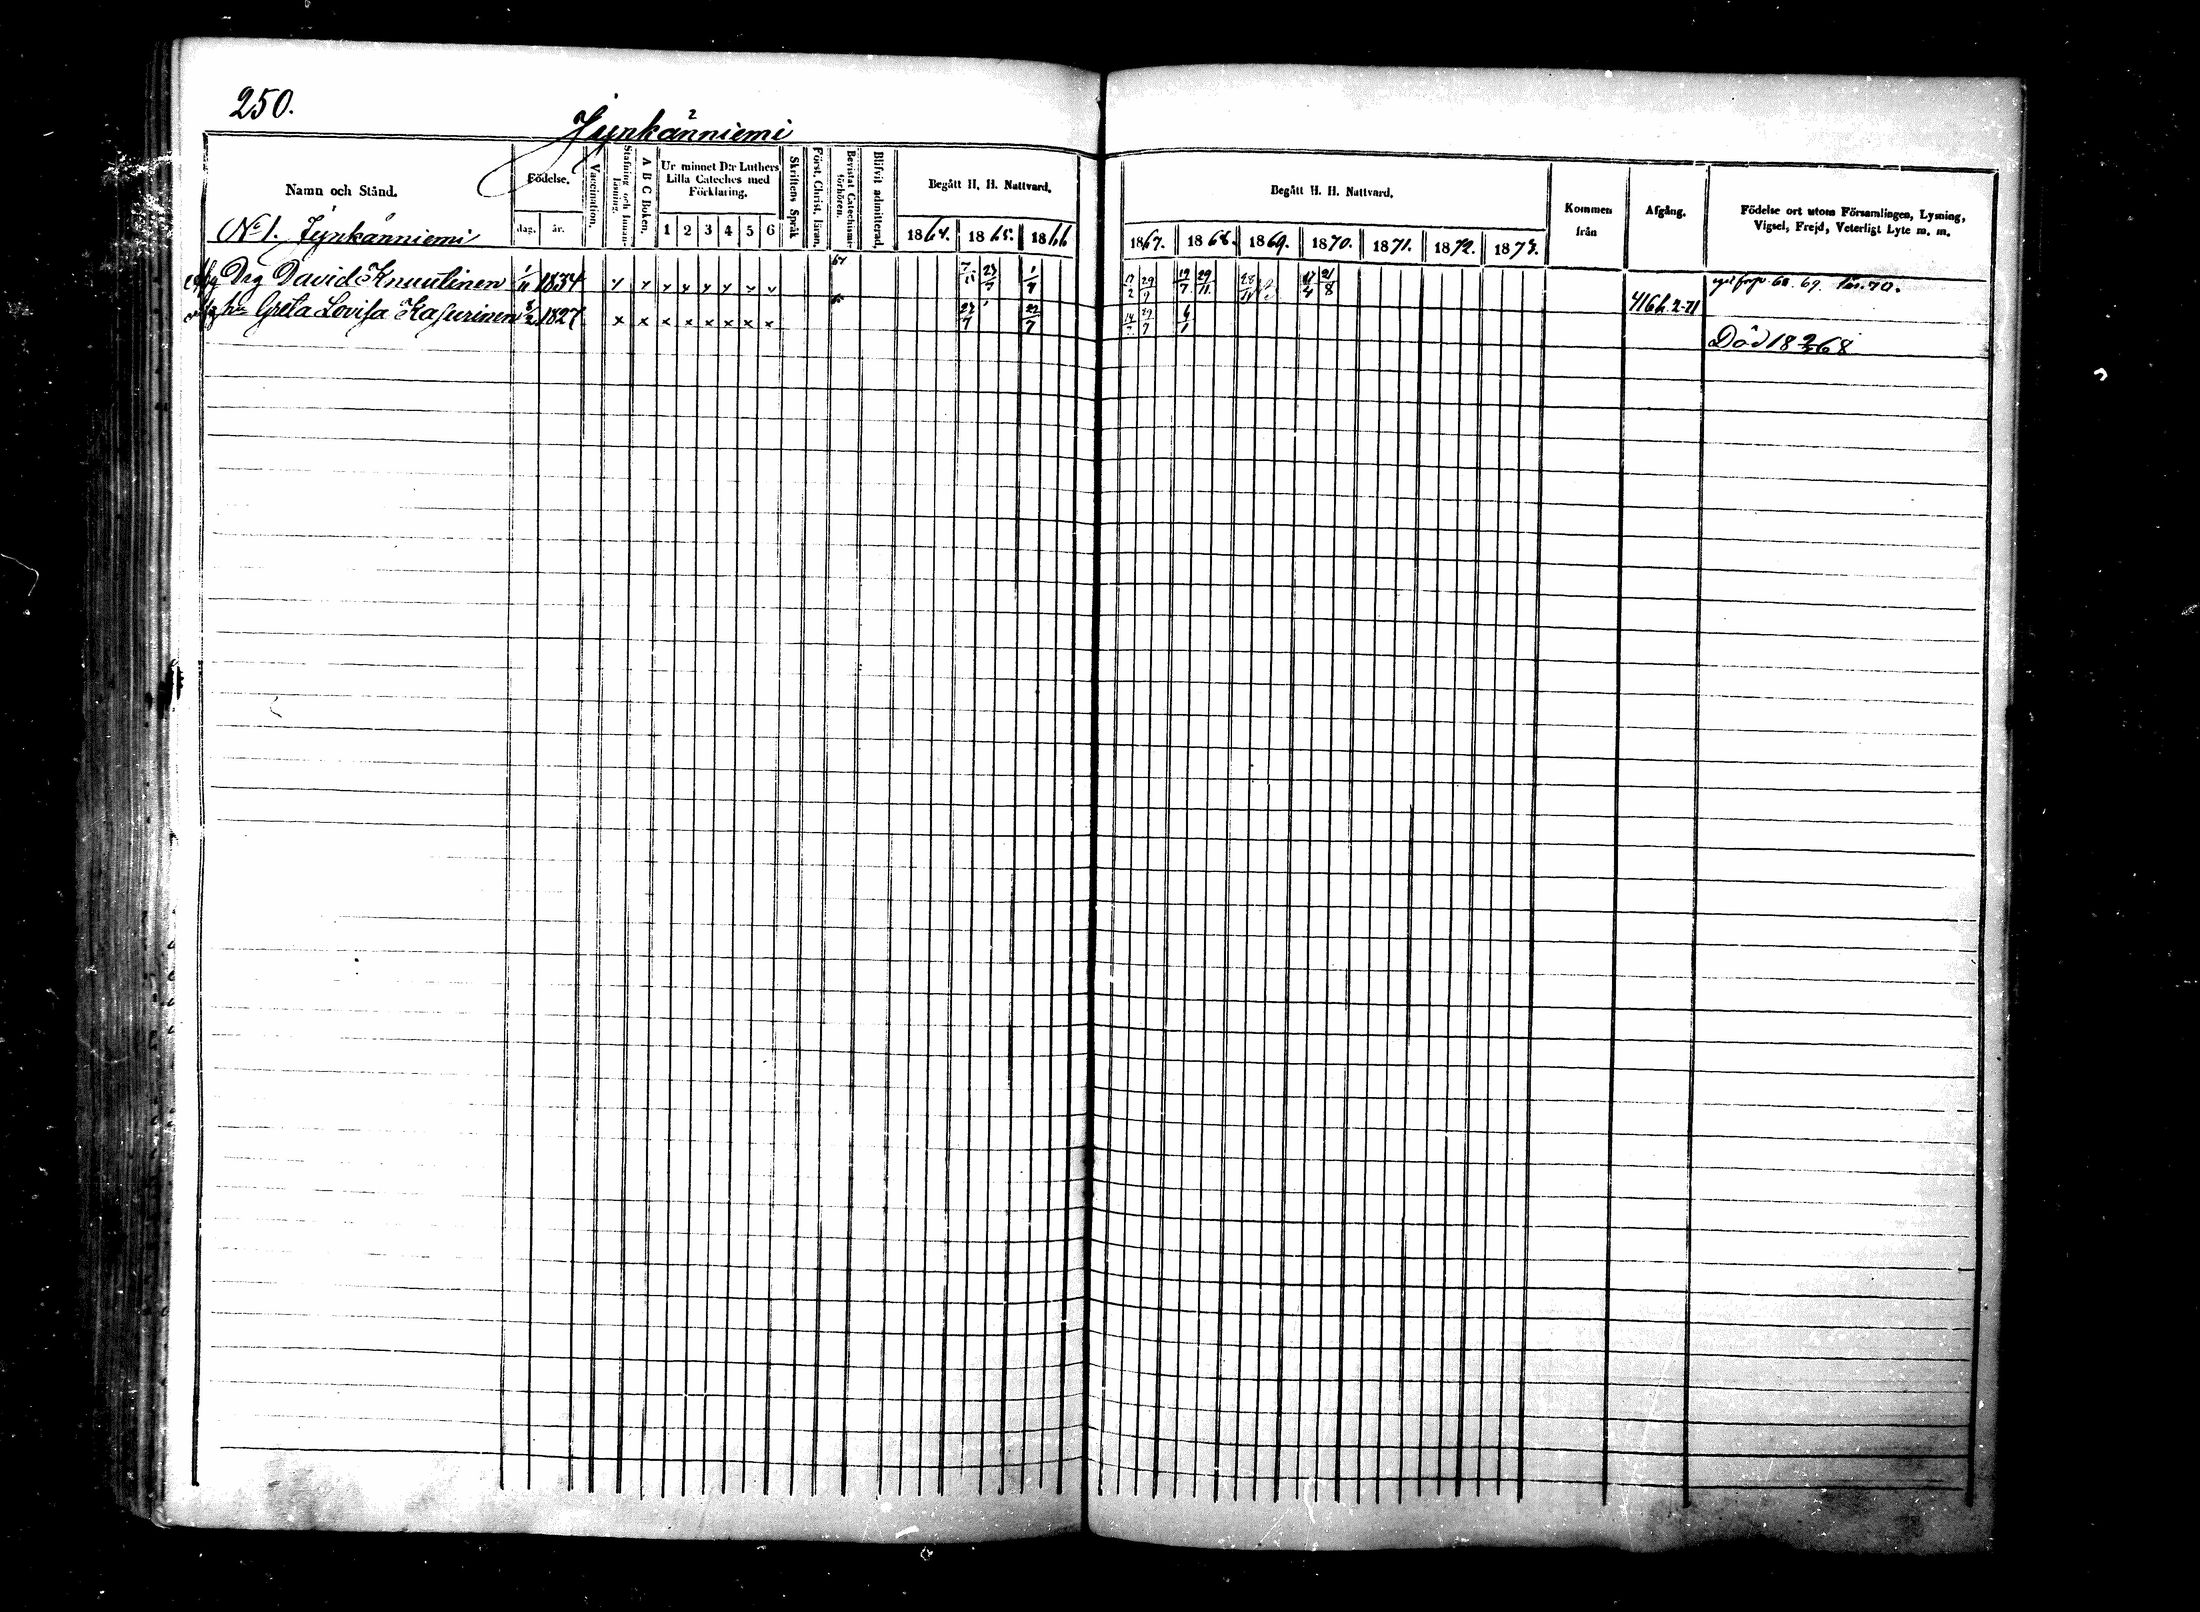 250.
Jynkänniemi
Namn och Stånd.
Födelse.
dag. år.
Vaccination.
Stafning och Innanläsning.
A B C Boken.
Ur minnet D:r Luthers Lilla Cateches med Förklaring.
1 2 3 4 5 6
Skriftens Språk
Först. Christ. läran.
Bevistat Catechismiförhören.
Blifvit admitterad.
Begått H. H. Nattvard.
1864. 1865. 1866
Begått H. H. Nattvard.
1867. 1868. 1869. 1870. 1871. 1872. 1873.
Kommen från
Afgång.
Födelse ort utom Församlingen, Lysning, Vigsel, Frejd, Veterligt Lyte m. m.
No 1. Jynkänniemi
Drg David Knuutinen 1/11 1834 7/5 23/7 1/7 17/2 29/9 12/7 29/11 28/11 17/4 21/8 69. 70.
hu Greta Lovisa Kasurinen 1827 x x x x x x x x 23/7 22/7 14/7 29/9 6/1
Död 18 68